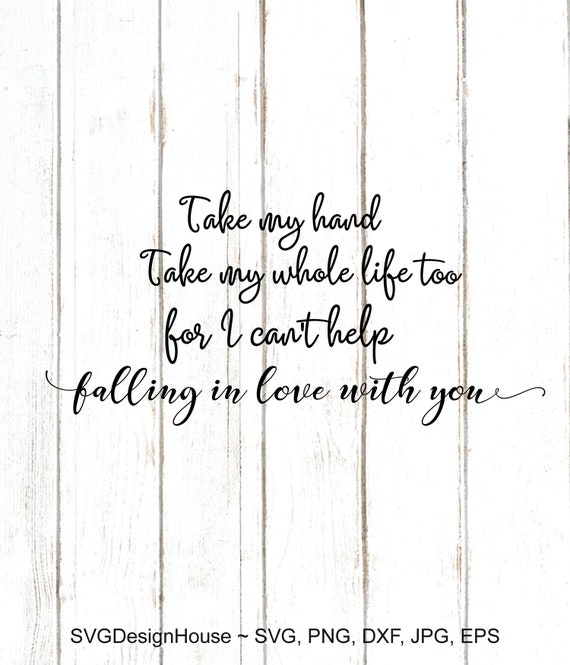 Take my hand
Take my whole life too
for I can't help
falling in love with you
SVGDesignHouse ~ SVG, PNG, DXF, JPG, EPS